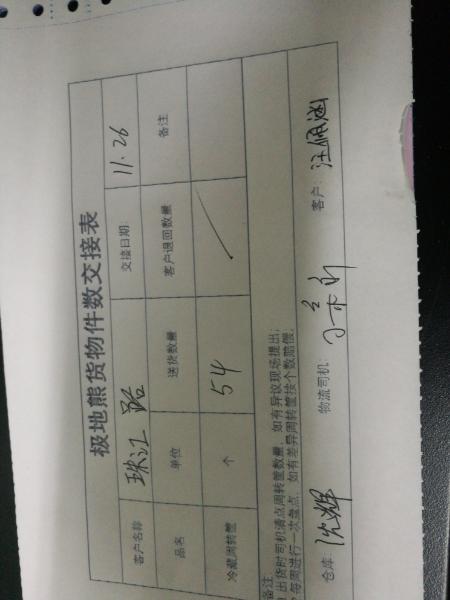 极地熊货物件数交接表
客户名称 珠江路 交接日期: 11.26
品名 单位 送货数量 客户退回数量 备注
冷藏周转筐 个 54 /
备注
出货时司机清点周转筐数量, 如有异议现场提出;
每周进行一次盘点, 如有差异周转筐按个数赔偿;
仓库: 沈辉 物流司机: 客户: 汪佩